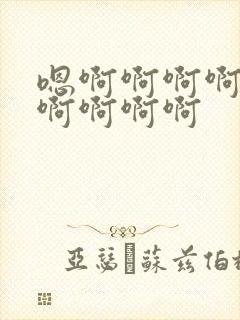 嗯啊啊啊啊
啊啊啊啊
亞瑟蘇茲伯